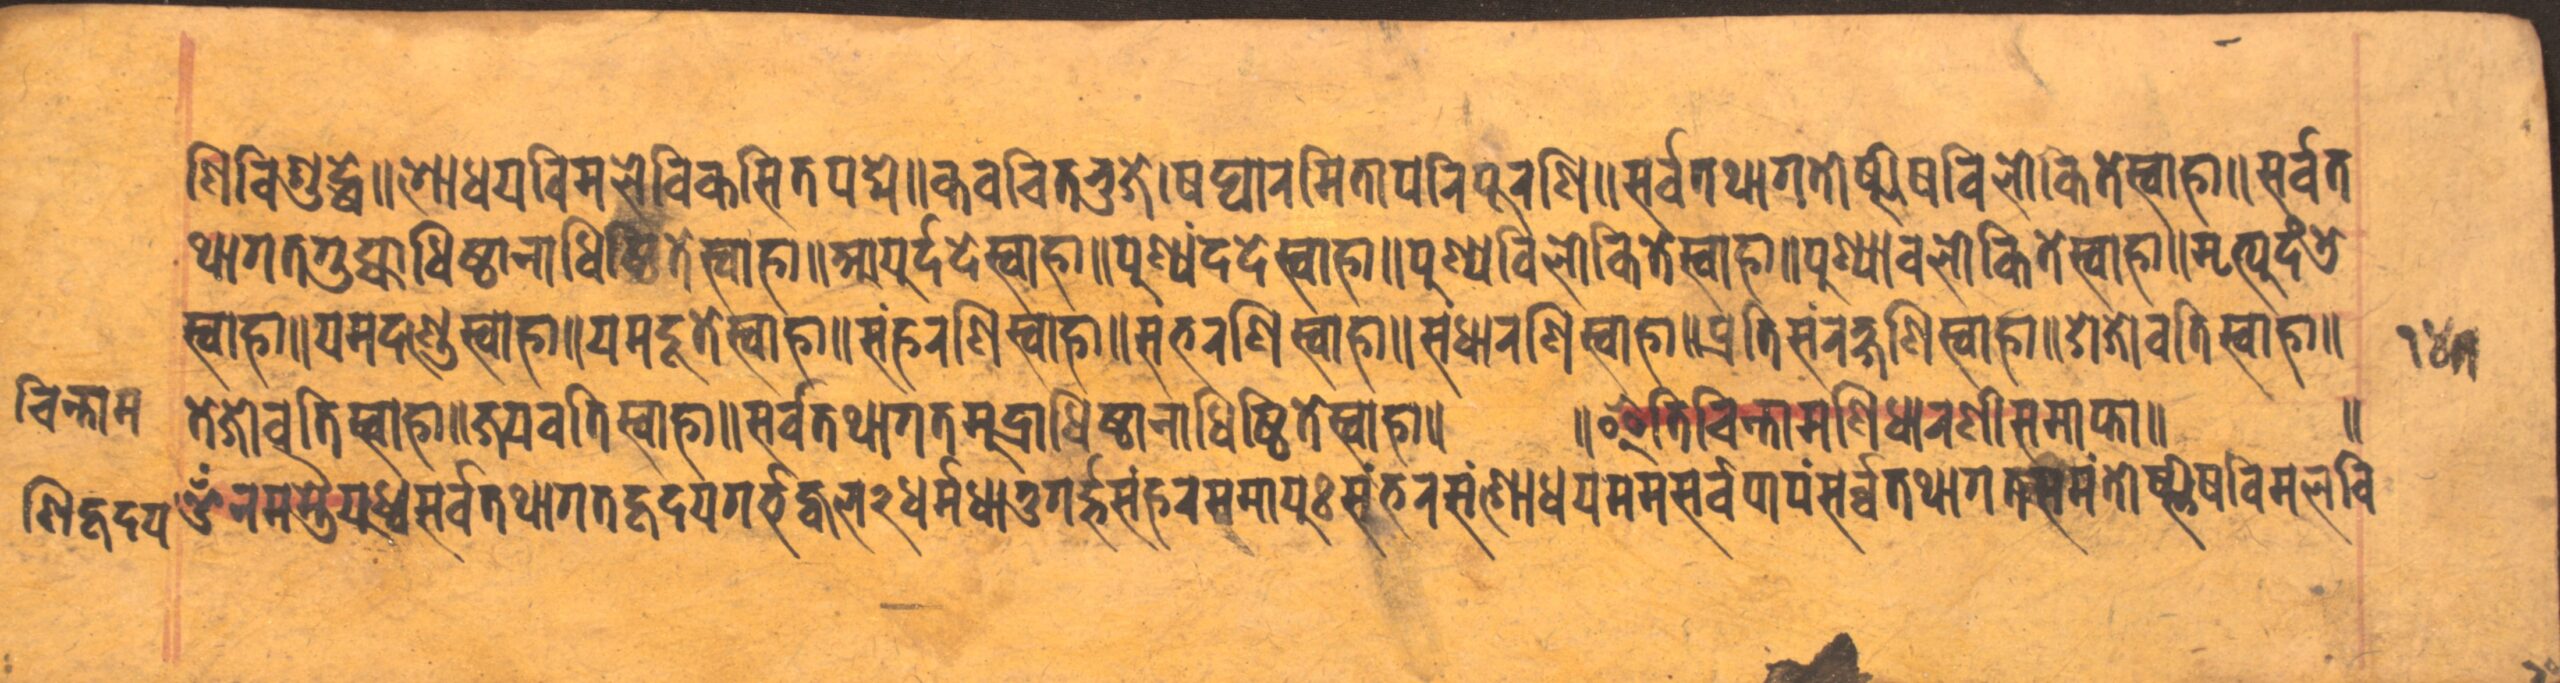 णिविशुद्धे॥शोधयविमलेविकसितपद्मे॥कवचितभुजे।षट्पारमितापरिपूरणि॥सर्वतथागतोष्णीषविलोकितेस्वाहा॥सर्वत
थागतगुह्याधिष्ठानाधिष्ठितेस्वाहा॥आयुर्ददेस्वाहा॥पुण्यंददेस्वाहा॥पुण्यविलोकितेस्वाहा॥पुण्यावलोकितेस्वाहा॥मृत्युदंडे
स्वाहा॥यमदण्डेस्वाहा॥यमदूतेस्वाहा॥संहरणिस्वाहा॥संभरणिस्वाहा॥संधारणिस्वाहा॥प्रतिसंरक्षणिस्वाहा॥ओजोवतिस्वाहा॥
चिन्ताम तेजोवतिस्वाहा॥जयवतिस्वाहा॥सर्वतथागतमुद्राधिष्ठानाधिष्ठितेस्वाहा॥ ॥इतिचिन्तामणिधारणीसमाप्ता॥ ॥
णिहृदय ॐनमस्त्रैयध्वसर्वतथागतहृदयगर्भज्वल२धर्मधातुगर्भसंहरममायुःसंभरसंशोधयममसर्वपापंसर्व्वतथागतसमंतोष्णीषविमलवि